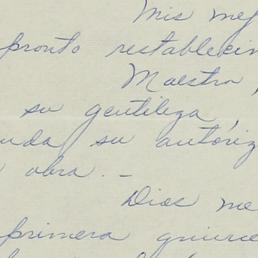 Mis mej
pronto restablecim
Maestro,
su gentileza,
uda su autoriz
obra. _
Dios me
primera quince